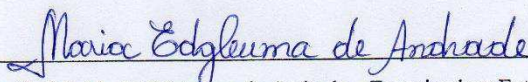 Maria Edgleuma de Andrade